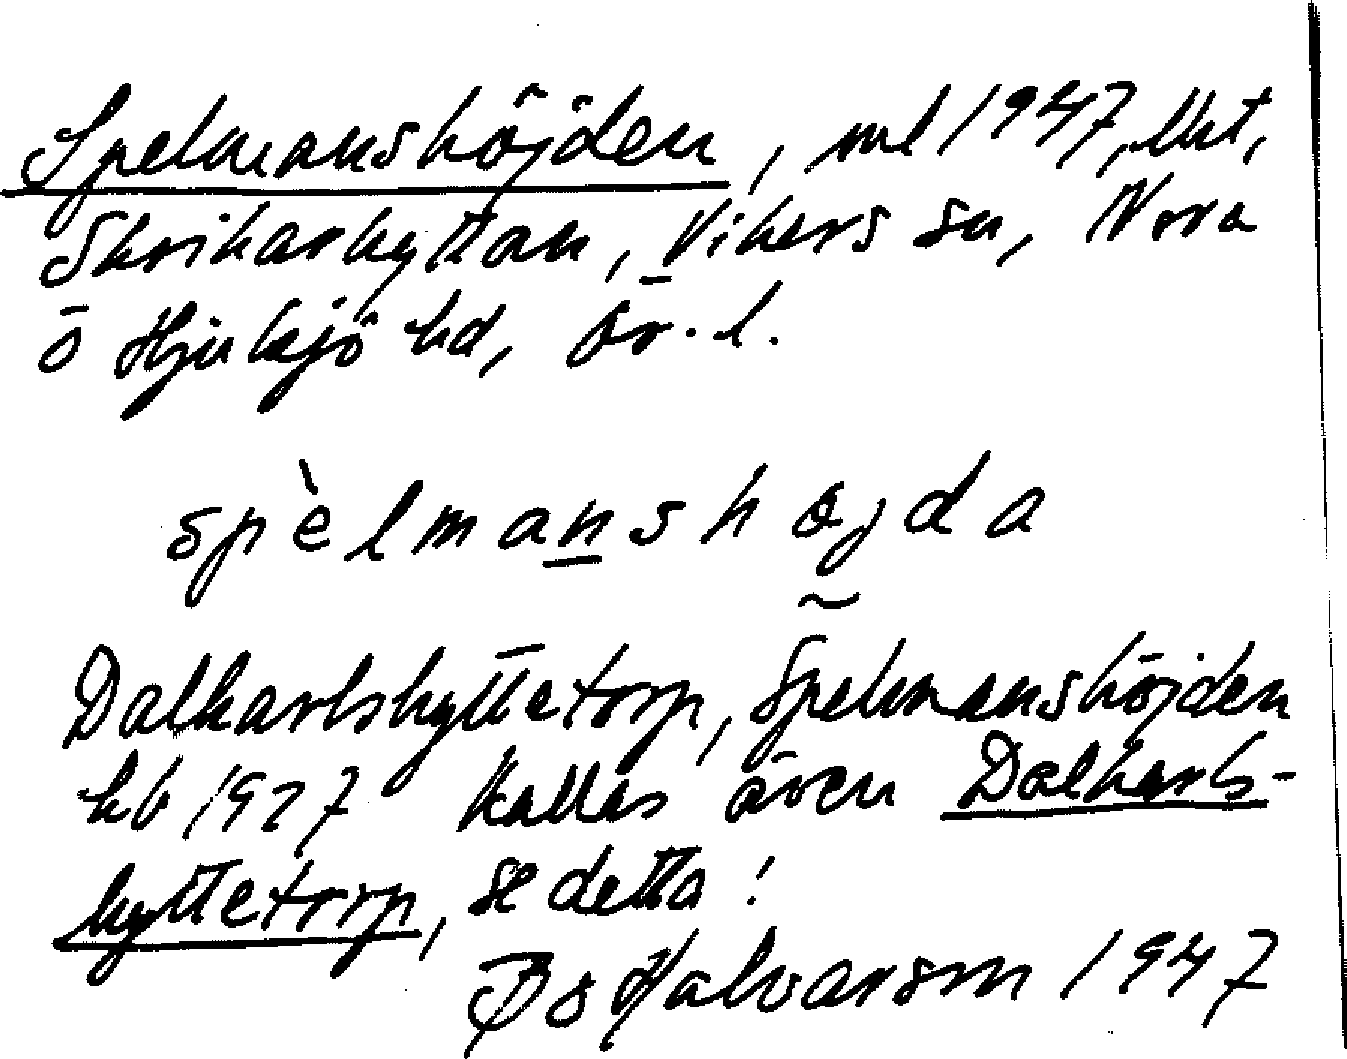 Spelmanshöjden, ml 1947, Utt,
Skrikarhyttan, Vikers sn, Nora
o Hjulsjö hd, Ör. l.
spèlmanshøjda
Dalkarlshyttetorp, Spelmanshöjden
hb 1927 Kallas även Dalkarls-
hyttetorp, se detta!
Bo Halvarson 1947